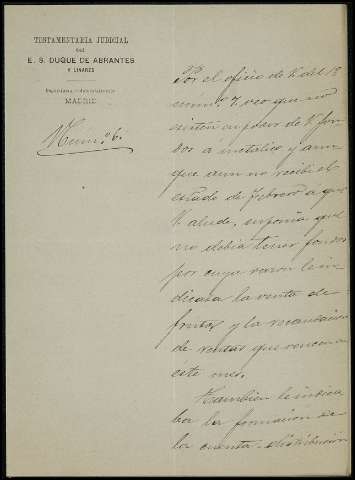 TESTAMENTARIA JUDICIAL
DEL
E. S. DUQUE DE ABRANTES
Y LINARES
MADRID
Num.º 6.
Por el oficio de V. del 18
veo que no
ecsisten en poder de V. fon-
dos á metalico y aun-
que aun no recibi el
estado de Febrero a que
V. alude, suponia que
no debia tener fondos
por cuya razon le in-
dicaba la venta de
frutos y la recaudacion
de rentas que vencen
éste mes.
Tambien le indica
ba la formacion de
la cuenta distribucion